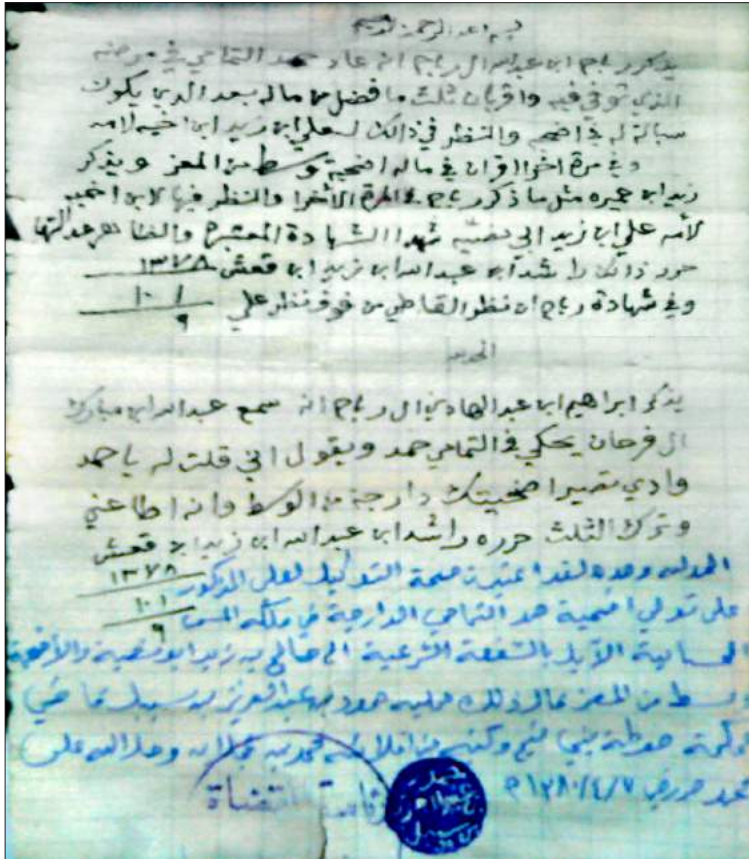 بسم الله الرحمن الرحيم
يذكر رباح ابن عبدالله ال رباح انه عاد حمد التمامي في مرضه
الذي توفي فيه واقر بان ثلث ما فضل من ماله بعد الدين يكون
سبالة له في اضحيه والنظر في ذالك لعلي ابن زيد ابن اخيه لامه
وفي مرة اخرا اقر ان في ماله اضحية وسط من المعز ويذكر
زيد ابن حميره مثل ما ذكر رباح في المرة الأخرا والنظر فيها لابن اخيه
لأمه علي ابن زيد ابي نصيه شهدا الشهادة المعتبرة
حرر ذالك راشد ابن عبدالله ابن زيد ابن قعش ١٣٧٨
وفي شهادة رباح ان نظر القاضي من فوق نظر علي ١٠١
٩
الحمد لله
يذكر ابراهيم ابن عبدالهادي ال رباح انه سمع عبدالله ابن مبارك
ال فرحان يحكي في التمامي حمد ويقول اني قلت له يا حمد
ودي تصير اضحيتك دارجة من الوسط وانه اطاعني
وترك الثلث حرره راشد ابن عبدالله ابن زيد ابن قعش
١٣٧٨
الحمد لله وحده لقد اعتبرت صحة التوكيل لعلي المذكور
١٠١
على تولي اضحية حمد التمامي الدارجة في ملكه المسمى
٩
الآيل بالشفعة الشرعية الى صالح بن زيد ابو نصية والأضحية
وسط من المعز قال ذلك ممليه حمود بن عبدالعزيز بن سبيل قاضي
محكمة حوطة بني تميم وكتبه من املائه محمد بن عجلان وصلى الله على
محمد حرر في ١٣٨٠/٤/٧
رئاسة القضاة